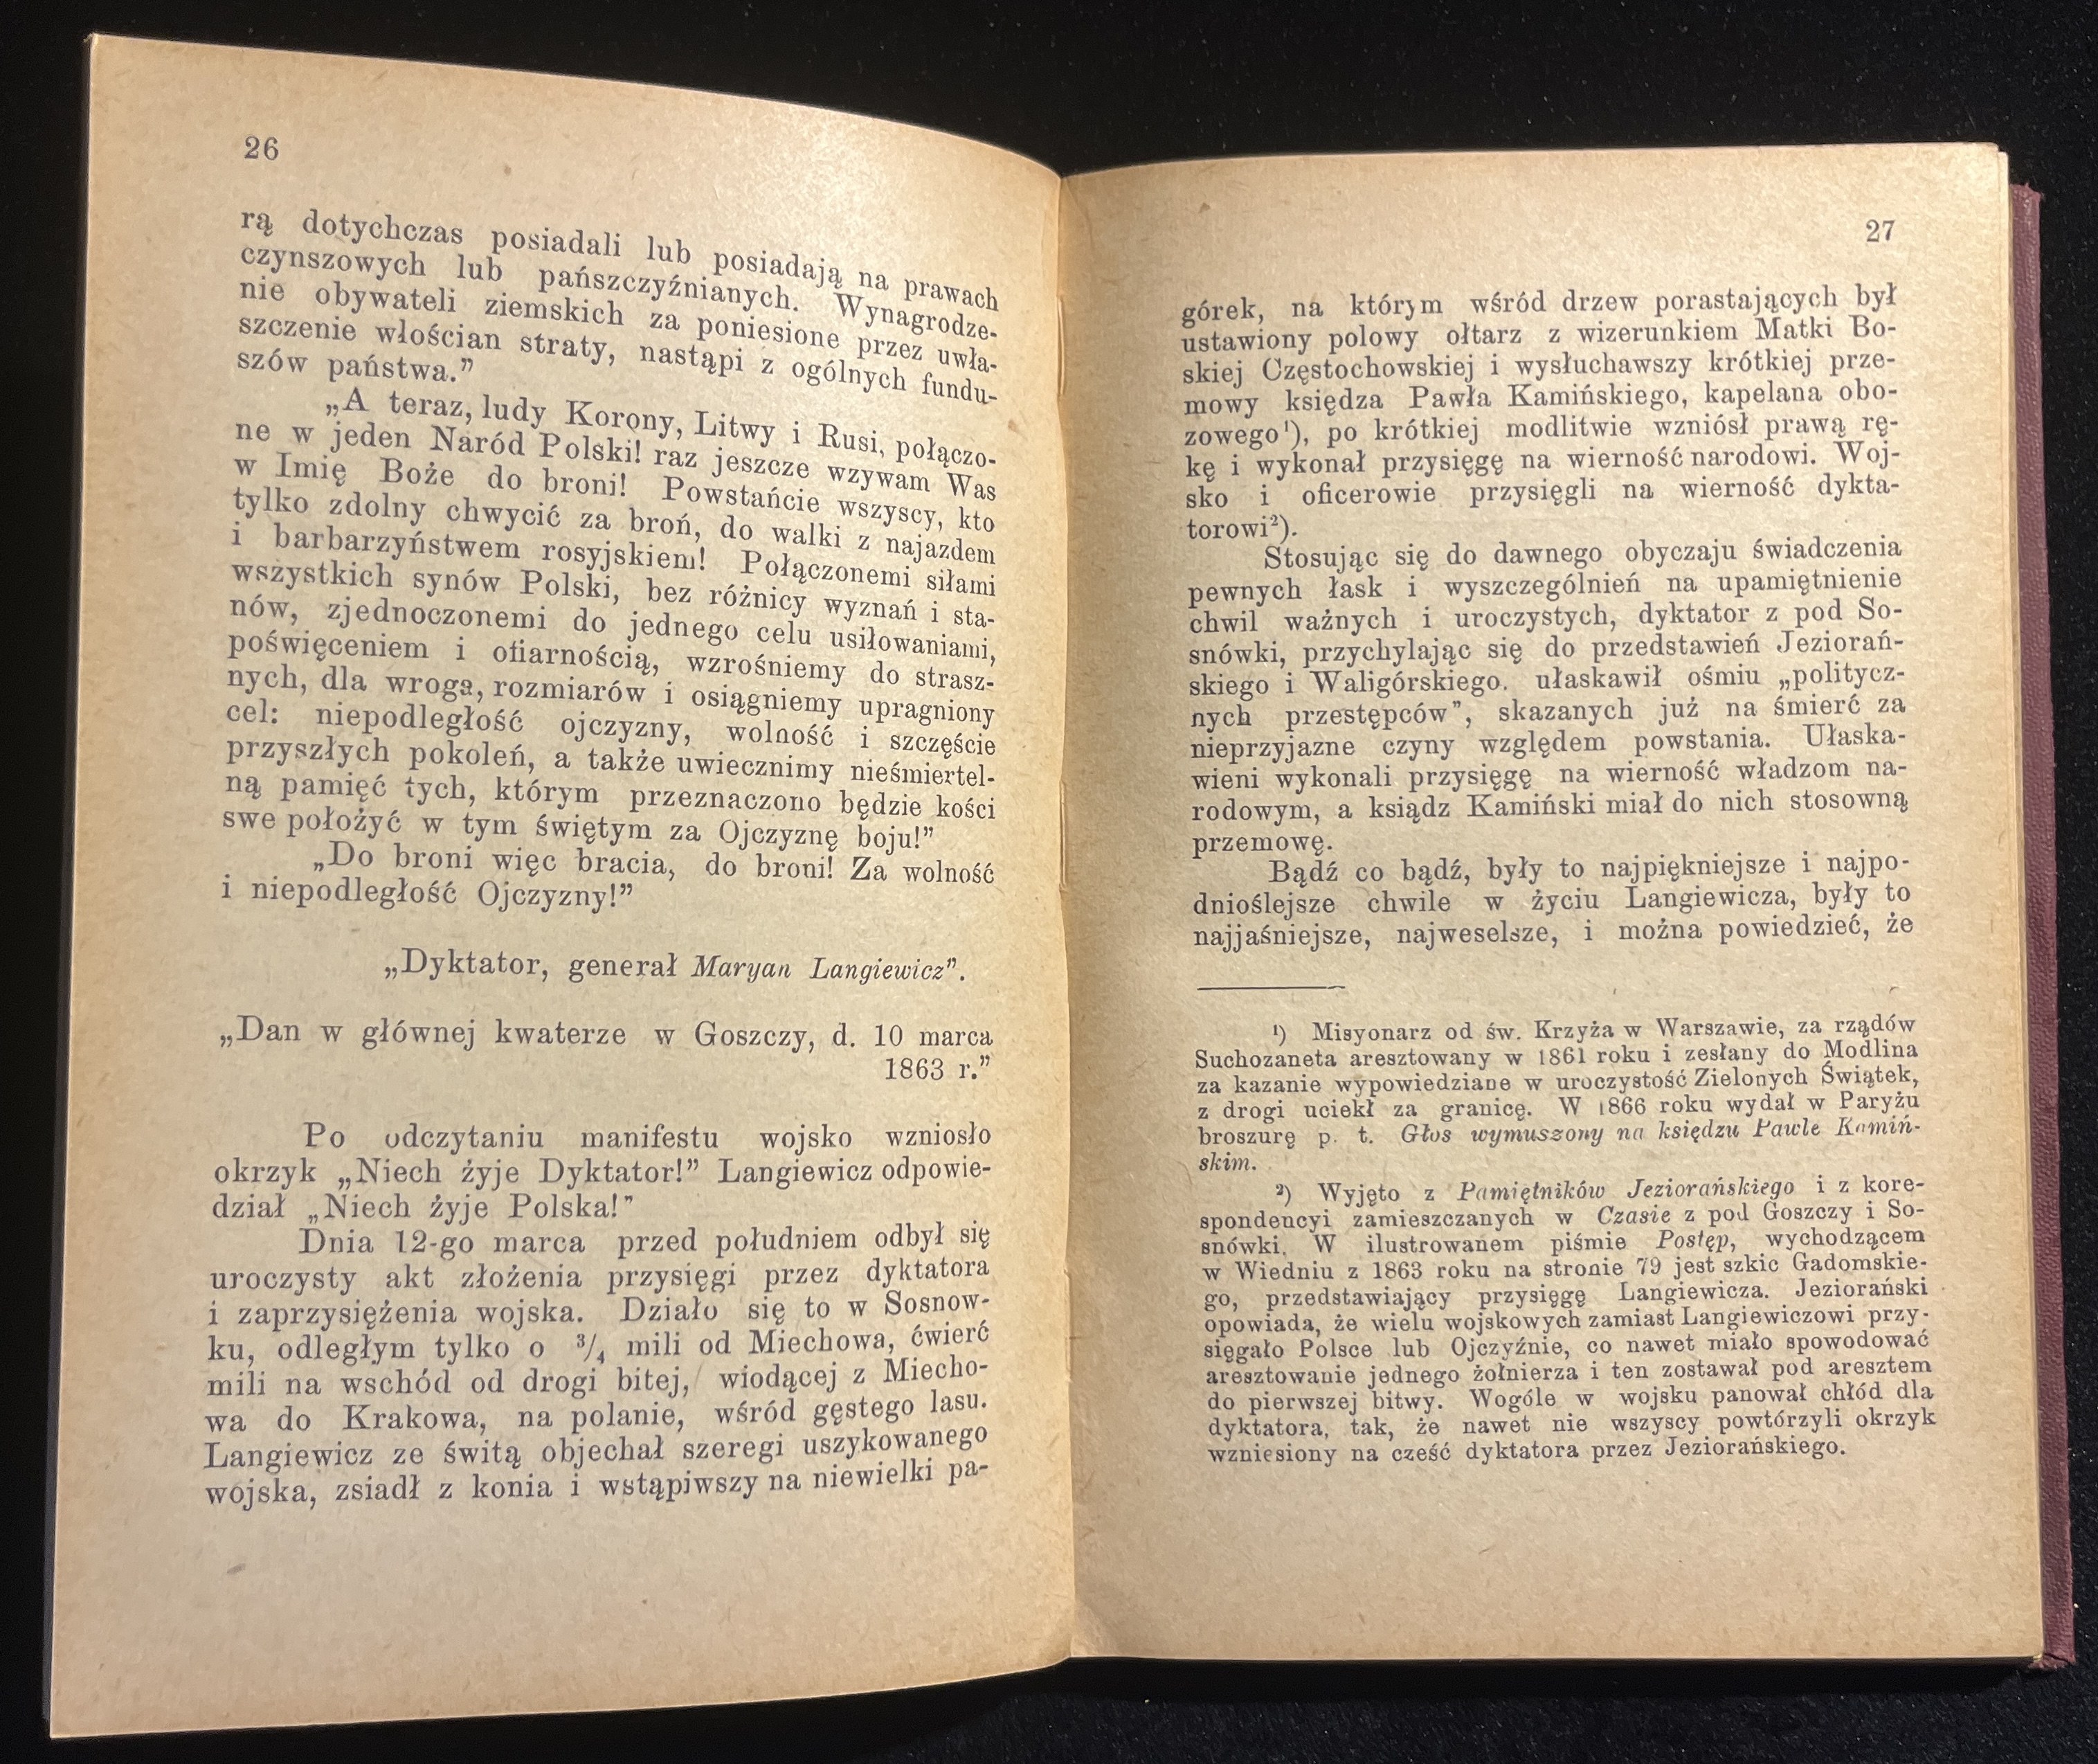 26
rą dotychczas posiadali lub posiadają na prawach
czynszowych lub pańszczyźnianych. Wynagrodze-
nie obywateli ziemskich za poniesione przez uwła-
szczenie włościan straty, nastąpi z ogólnych fundu-
szów państwa.”
„A teraz, ludy Korony, Litwy i Rusi, połączo-
ne w jeden Naród Polski! raz jeszcze wzywam Was
w Imię Boże do broni! Powstańcie wszyscy, kto
tylko zdolny chwycić za broń, do walki z najazdem
i barbarzyństwem rosyjskiem! Połączonemi siłami
wszystkich synów Polski, bez różnicy wyznań i sta-
nów, zjednoczonemi do jednego celu usiłowaniami,
poświęceniem i ofiarnością, wzrośniemy do strasz-
nych, dla wroga, rozmiarów i osiągniemy upragniony
cel: niepodległość ojczyzny, wolność i szczęście
przyszłych pokoleń, a także uwiecznimy nieśmiertel-
ną pamięć tych, którym przeznaczono będzie kości
swe położyć w tym świętym za Ojczyznę boju!”
„Do broni więc bracia, do broni! Za wolność
i niepodległość Ojczyzny!”
„Dyktator, generał Maryan Langiewicz”.
„Dan w głównej kwaterze w Goszczy, d. 10 marca
1863 r.”
Po odczytaniu manifestu wojsko wzniosło
okrzyk „Niech żyje Dyktator!” Langiewicz odpowie-
dział „Niech żyje Polska!”
Dnia 12-go marca przed południem odbył się
uroczysty akt złożenia przysięgi przez dyktatora
i zaprzysiężenia wojska. Działo się to w Sosnow-
ku, odległym tylko o ³/₄ mili od Miechowa, ćwierć
mili na wschód od drogi bitej, wiodącej z Miecho-
wa do Krakowa, na polanie, wśród gęstego lasu.
Langiewicz ze świtą objechał szeregi uszykowanego
wojska, zsiadł z konia i wstąpiwszy na niewielki pa-
27
górek, na którym wśród drzew porastających był
ustawiony polowy ołtarz z wizerunkiem Matki Bo-
skiej Częstochowskiej i wysłuchawszy krótkiej prze-
mowy księdza Pawła Kamińskiego, kapelana obo-
zowego¹), po krótkiej modlitwie wzniósł prawą rę-
kę i wykonał przysięgę na wierność narodowi. Woj-
sko i oficerowie przysięgli na wierność dykta-
torowi²).
Stosując się do dawnego obyczaju świadczenia
pewnych łask i wyszczególnień na upamiętnienie
chwil ważnych i uroczystych, dyktator z pod So-
snówki, przychylając się do przedstawień Jeziorań-
skiego i Waligórskiego. ułaskawił ośmiu „politycz-
nych przestępców”, skazanych już na śmierć za
nieprzyjazne czyny względem powstania. Ułaska-
wieni wykonali przysięgę na wierność władzom na-
rodowym, a ksiądz Kamiński miał do nich stosowną
przemowę.
Bądź co bądź, były to najpiękniejsze i najpo-
dnioślejsze chwile w życiu Langiewicza, były to
najjaśniejsze, najweselsze, i można powiedzieć, że
¹) Misyonarz od św. Krzyża w Warszawie, za rządów
Suchozaneta aresztowany w 1861 roku i zesłany do Modlina
za kazanie wypowiedziane w uroczystość Zielonych Świątek,
z drogi uciekł za granicę. W 1866 roku wydał w Paryżu
broszurę p. t. Głos wymuszony na księdzu Pawle Kamiń-
skim.
²) Wyjęto z Pamiętników Jeziorańskiego i z kore-
spondencyi zamieszczanych w Czasie z pod Goszczy i So-
snówki. W ilustrowanem piśmie Postęp, wychodzącem
w Wiedniu z 1863 roku na stronie 79 jest szkic Gadomskie-
go, przedstawiający przysięgę Langiewicza. Jeziorański
opowiada, że wielu wojskowych zamiast Langiewiczowi przy-
sięgało Polsce lub Ojczyźnie, co nawet miało spowodować
aresztowanie jednego żołnierza i ten zostawał pod aresztem
do pierwszej bitwy. Wogóle w wojsku panował chłód dla
dyktatora, tak, że nawet nie wszyscy powtórzyli okrzyk
wzniesiony na cześć dyktatora przez Jeziorańskiego.